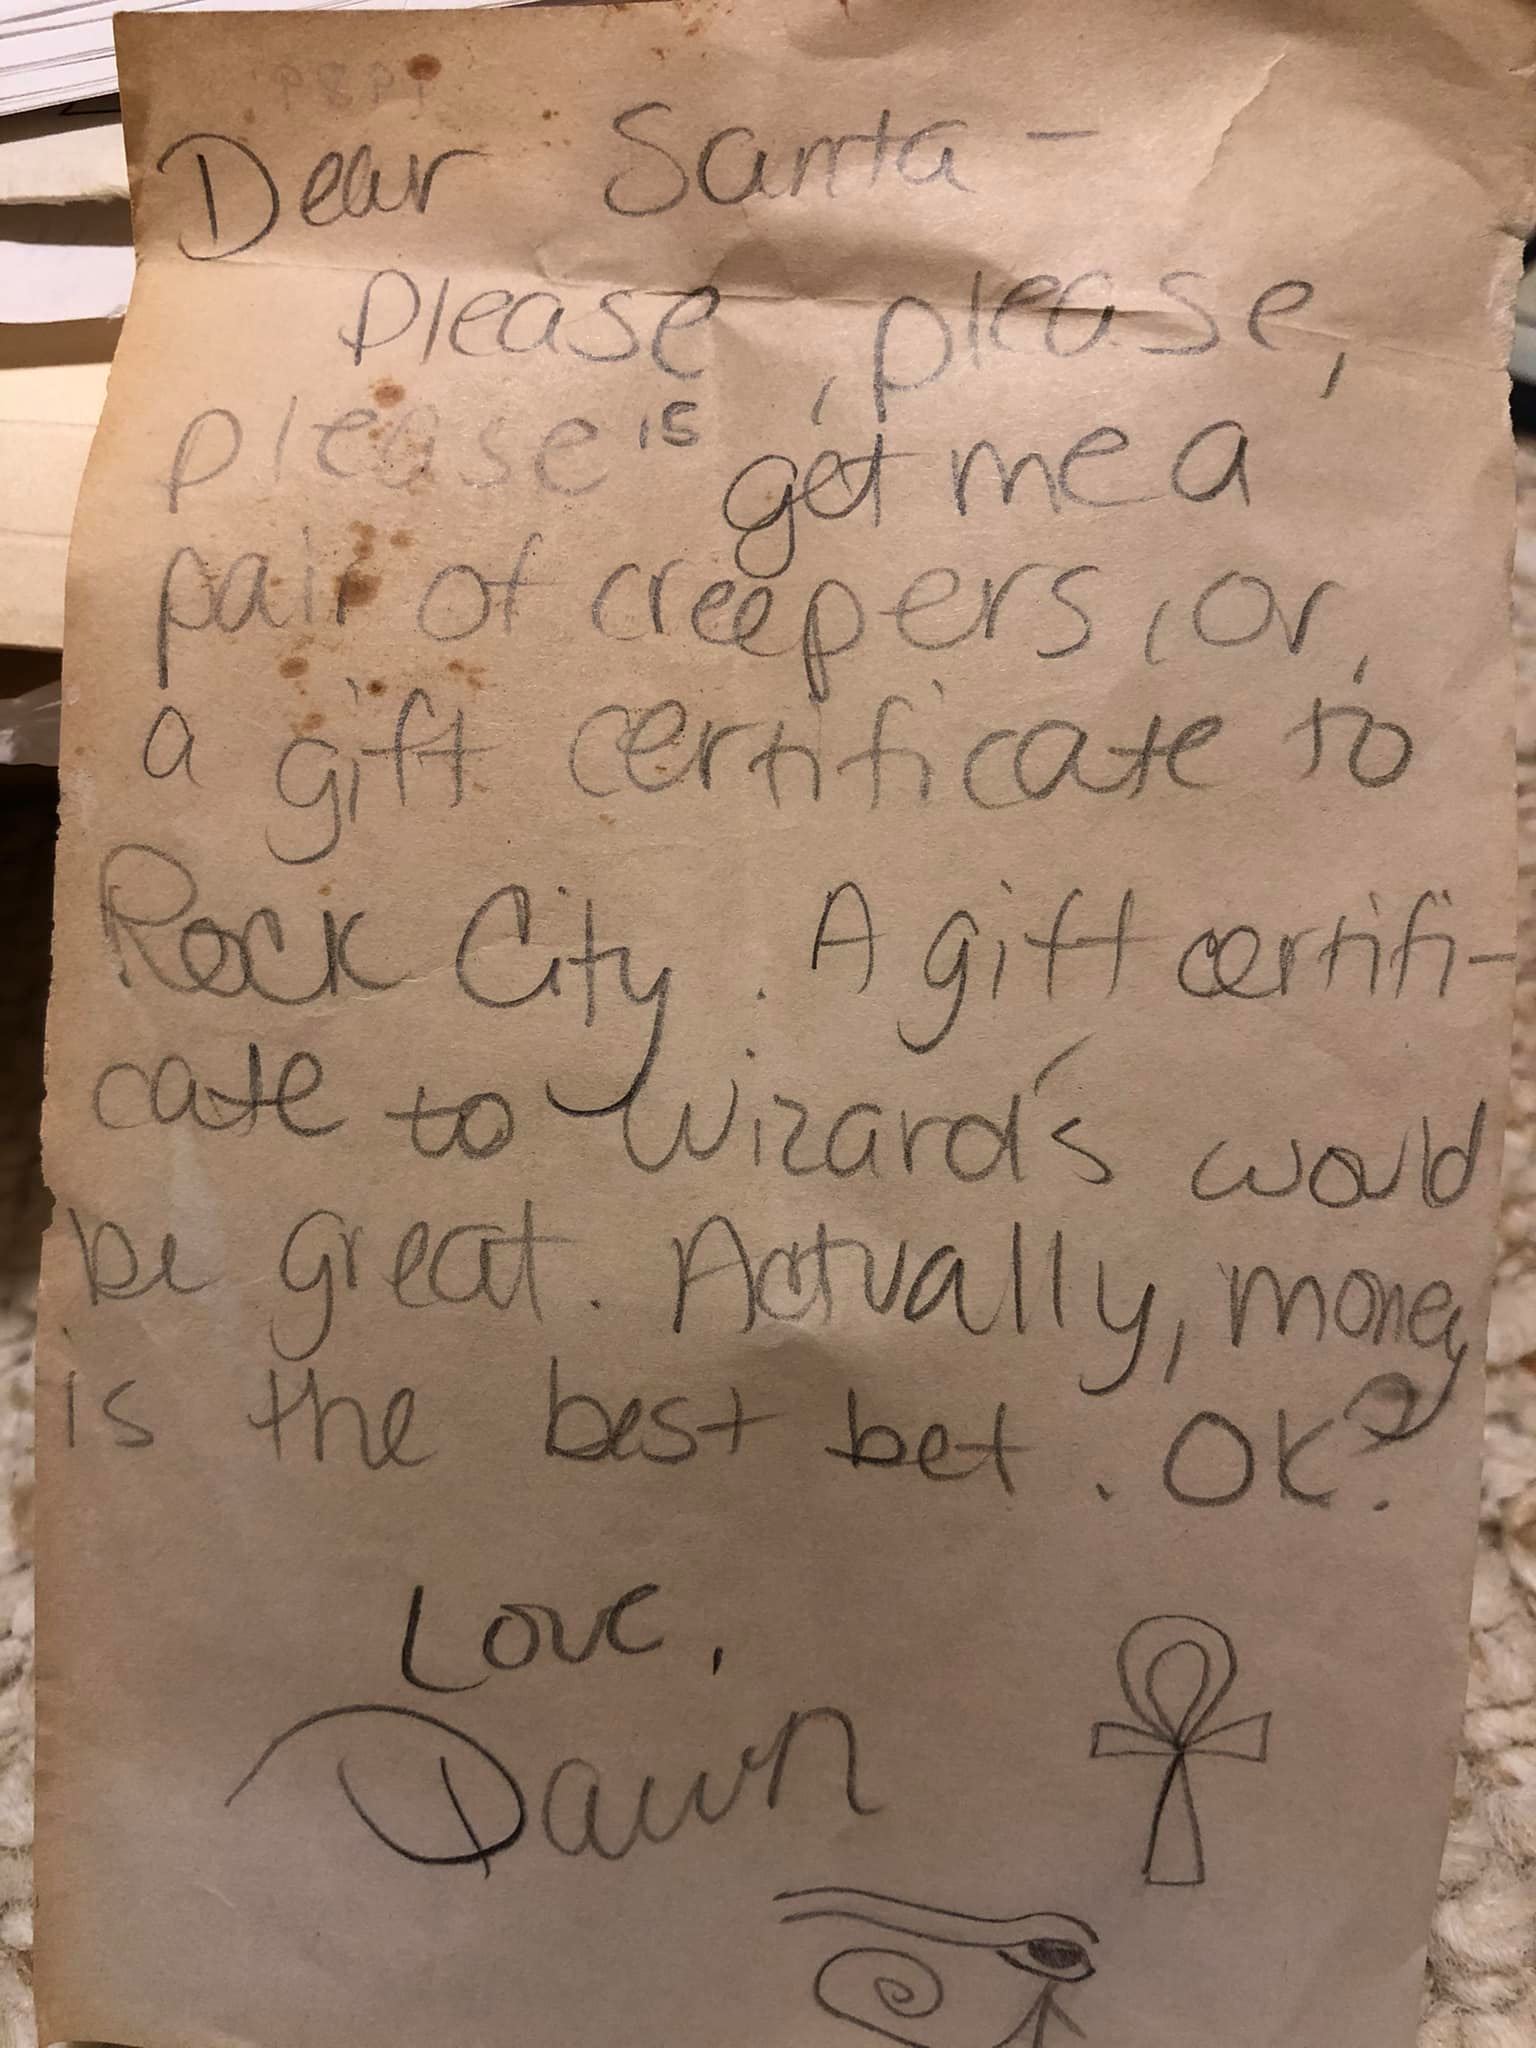 Dear Santa –
Please, please,
please¹⁵ get me a
pair of creepers, or,
a gift certificate to
Rock City. A gift certifi-
cate to Wizard's would
be great. Actually, money
is the best bet. OK?
Love,
Dawn